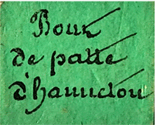 Bour
de patte
d'hanneton